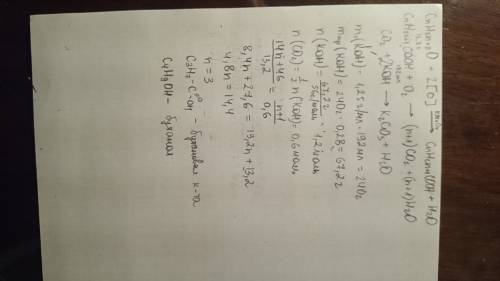 CnH2n+2O + 2[O] → CnH2n+1COOH + H2O
13,2г
CnH2n+1COOH + O2 → (n+1)CO2 + (n+1)H2O
192мл
CO2 + 2KOH → K2CO3 + H2O
m(KOH) = 1,25г/мл · 192мл = 240г
mчр(KOH) = 240г · 0,28 = 67,2г
n(KOH) = 67,2г / 56г/моль = 1,2моль
n(CO2) = 1/2 n(KOH) = 0,6моль
14n+46 / 13,2 = n+1 / 0,6
8,4n + 27,6 = 13,2n + 13,2
4,8n = 14,4
n = 3
C3H7-C OH - бутановая к-та
C4H9OH - бутанол